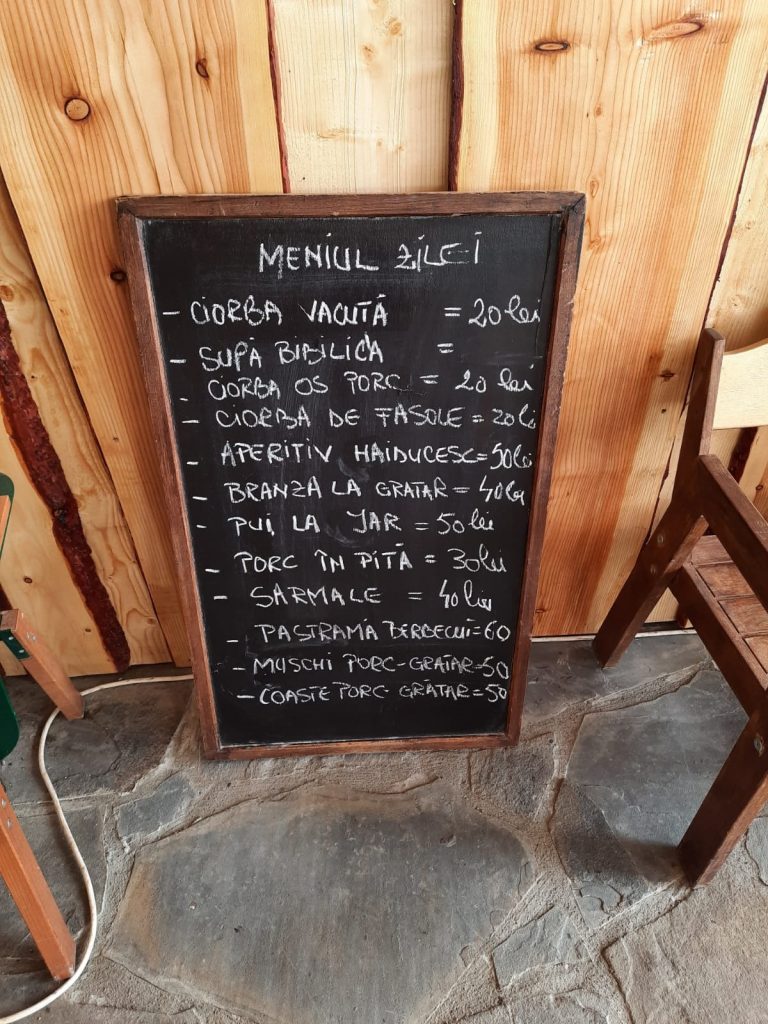 MENIUL ZILEI
- CIORBA VACUTĂ = 20 lei
- SUPĂ BIBILICĂ =
- CIORBA OS PORC = 20 lei
- CIORBĂ DE FASOLE = 20 lei
- APERITIV HAIDUCESC = 50 lei
- BRANZĂ LA GRATAR = 40 lei
- PUI LA JAR = 50 lei
- PORC ÎN PITĂ = 30 lei
- SARMALE = 40 lei
- PASTRAMĂ BERBECUT = 60
- MUSCHI PORC - GRATAR = 50
- COASTE PORC - GRĂTAR = 50